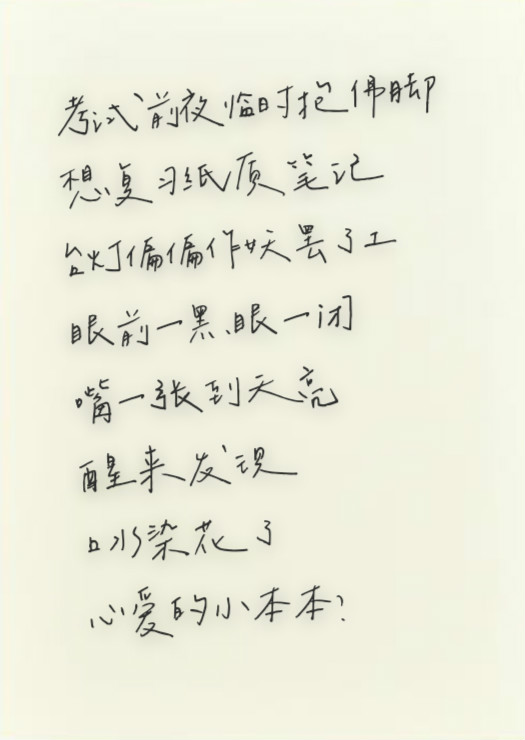 考试前夜临时抱佛脚
想复习纸质笔记
台灯偏偏作妖罢了工
眼前一黑、眼一闭
嘴一张到天亮
醒来发现
口水染花了
心爱的小本本?